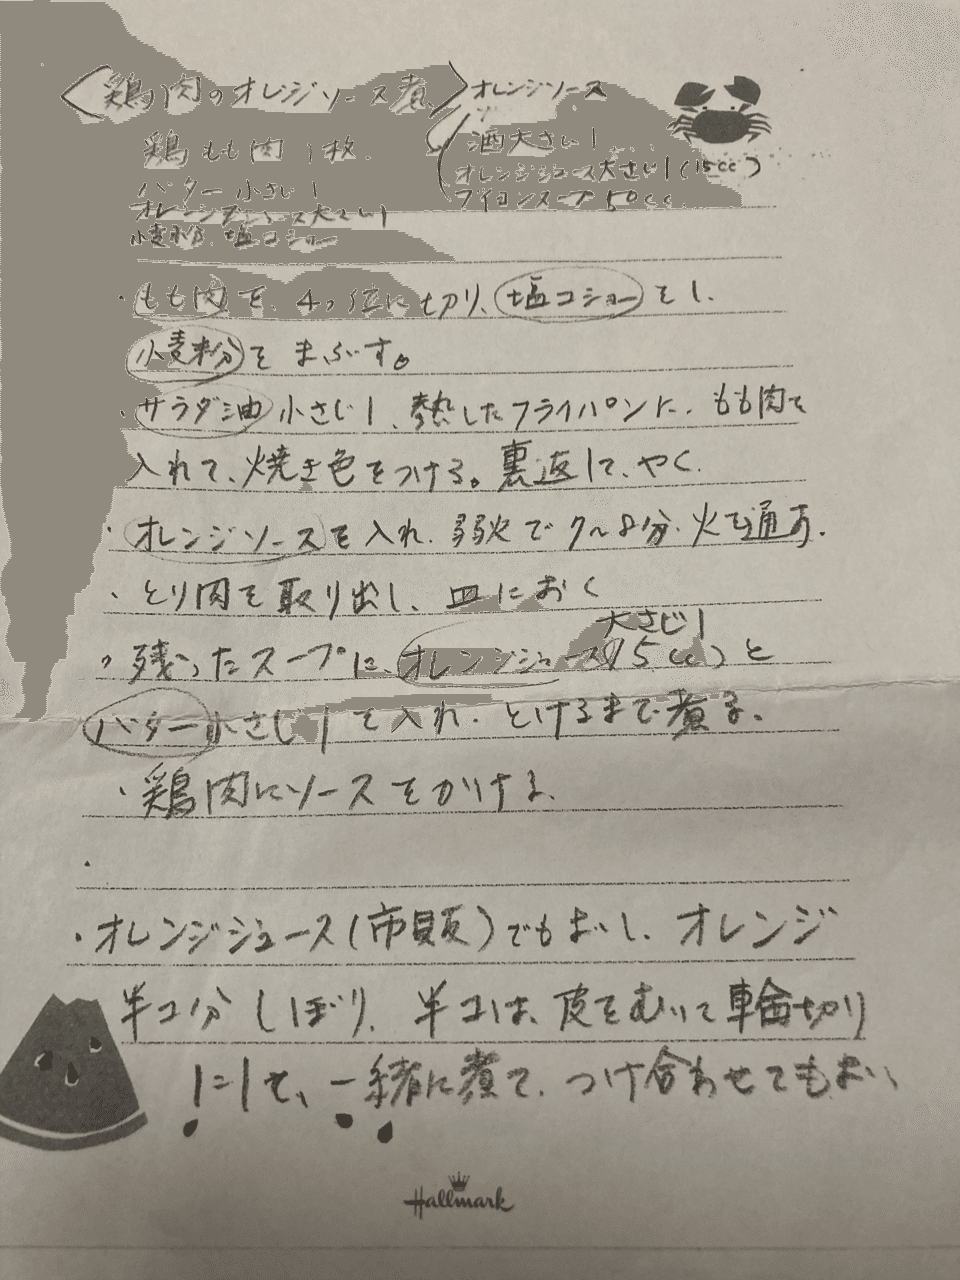 〈鶏肉のオレンジソース煮〉
鶏もも肉 1枚
バター 小さじ1
オレンジジュース大さじ1
小麦粉、塩コショー
オレンジソース
酒大さじ1
オレンジジュース大さじ1(15cc)
ブイヨンスープ 50cc
・もも肉を、4つ位に切り、塩コショーをし、
小麦粉をまぶす。
・サラダ油小さじ1、熱したフライパンに、もも肉を
入れて、焼き色をつける。裏返して、やく、
・オレンジソースを入れ、弱火で7〜8分、火を通す、
・とり肉を取り出し、皿におく
・残ったスープに、オレンジジュース大さじ1(15cc)と
バター小さじ1を入れ、とけるまで煮る、
・鶏肉にソースをかける、
・
・オレンジジュース(市販)でもよいし、オレンジ
半コ分しぼり、半コは、皮をむいて輪切り
にして、一緒に煮て、つけ合わせてもよい、
Hallmark